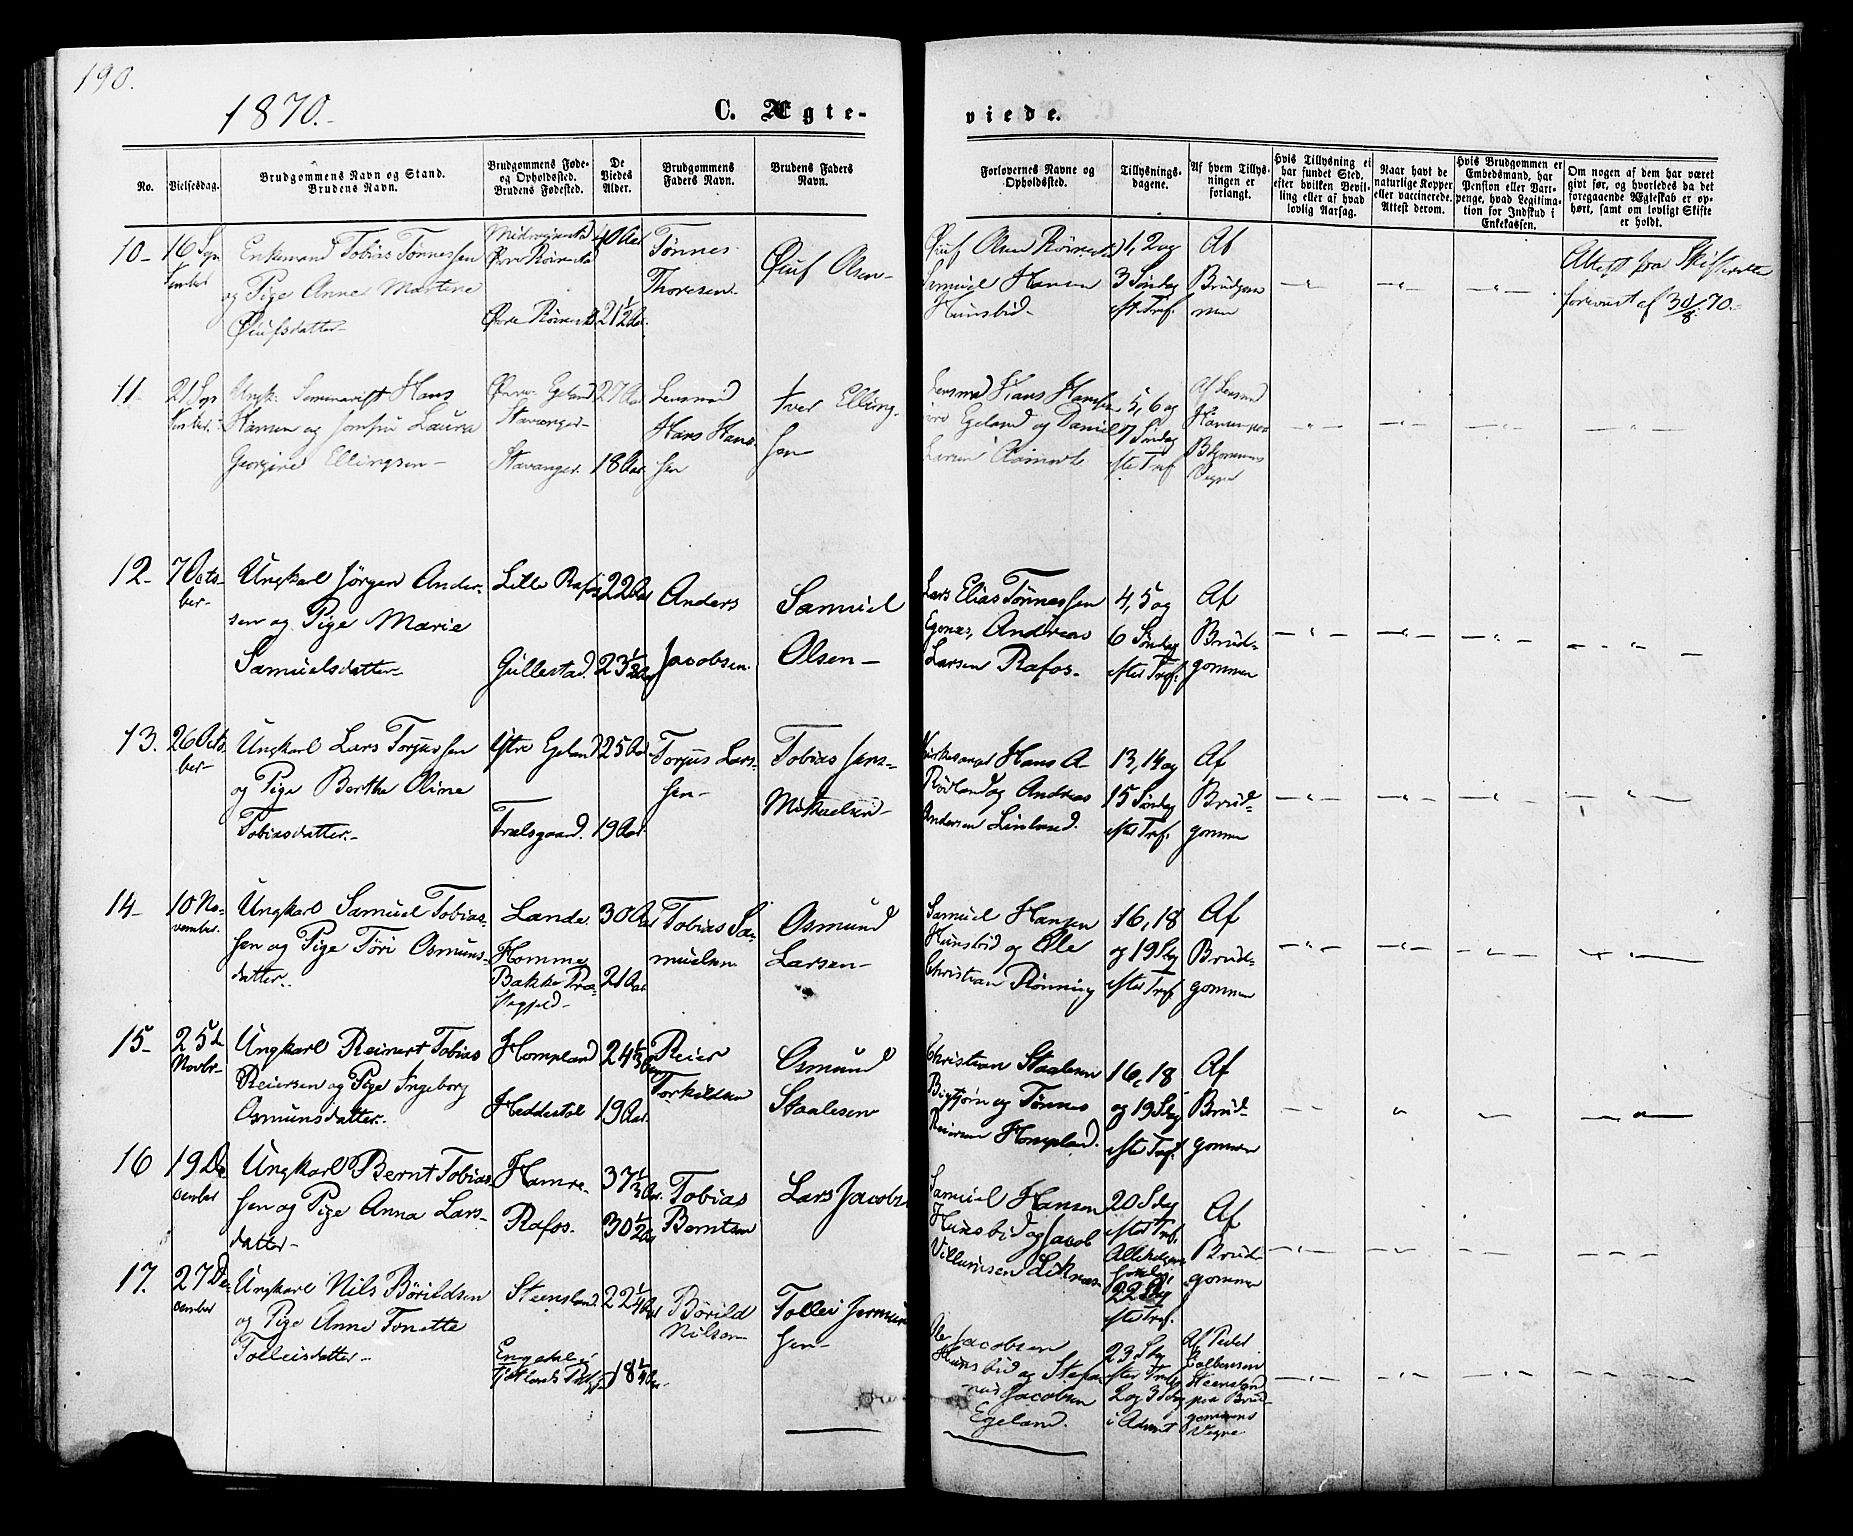 190.
1870.-
C. Ægte-
viede.
No.
Vielsesdag.
Brudgommens Navn og Stand.
Brudens Navn.
Brudgommens Føde-
og Opholdssted.
Brudens Fødested.
De
Viedes
Alder.
Brudgommens
Faders Navn.
Brudens Faders
Navn.
Forlovernes Navne og
Opholdssted.
Tillysnings-
dagene.
Af hvem Tillys-
ningen er
forlangt.
Hvis Tillysning ei
har fundet Sted,
efter hvilken Bevil-
ling eller af hvad
lovlig Aarsag.
Naar havt de
naturlige Kopper
eller vaccinerede.
Attest derom.
Hvis Brudgommen er
Embedsmand, har
Pension eller Vart-
penge, hvad Legitima-
tion for Indskud i
Enkekassen.
Om nogen af dem har været
givt før, og hvorledes da det
foregaaende Ægteskab er op-
hørt, samt om lovligt Skifte
er holdt.
10-
16 Sep
tember
Enkemand Tobias Tønnessen
og Pige Anne Martine
Øiufsdatter
Øvre Røirestad
40 Aar
21 1/2 Aar.
Tønnes
Thoresen.
Øiuf Olsen-
Øiuf Olsen Røirestad
Samuel Hansen
Hunsbid-
1, 2 og
3 Søndag
eft. Tref.
Af
Brudgom
men
Attest fra Skifteretten
forevist af 30/8 70.-
11-
21 Sep
tember.
Ungk. Seminarist Hans
Hansen og Jomfru Laura
Georgine Ellingsen-
Øvre Egeland
Stavanger-
Stavanger.
27 Aar
18 Aar.
Lensmand
Hans Han-
sen
Iver Elling-
sen-
Lensmd Hans Hansen
Egeland og Daniel
Larsen
5, 6 og
7 Søndag
efter Tref
Af Lensmd
Hansen paa
Bdgommens
Vegne
12-
7 Octo-
ber-
Ungkarl Jørgen Ander-
sen og Pige Marie
Samuelsdatter-
Lille Rafos
Gullestad.
22 Aar
23 1/2 Aar
Anders
Jacobsen.
Samuel
Olsen-
Lars Elias Tønnessen
Egenæs, Andreas
Larsen Rafos-
4, 5 og
6 Søndag
efter Tref.
Af
Brud-
gommen
13.
26 Octo
ber-
Ungkarl Lars Torjussen
og Pige Berthe Oline
Tobiasdatter.-
Ystre Egeland
Trælsgaard.
25 Aar
19 Aar.
Torjus Lars-
sen-
Tobias Jens-
Mikaelsen-
Kirkesanger Hans A-
Rødland og Andreas
Andersen Linland.
13, 14 og
15 Søndag
efter Tref.
Af
Brud-
gommen
14-
10 No-
vember.
Ungkarl Samuel Tobias-
sen og Pige Tøri Osmuns-
datter..
Lande.
Homme
Bakke Præ-
stegjeld-
30 Aar
21 Aar.
Tobias Sa-
muelsen
Osmund
Larsen-
Samuel Hansen
Hunsbid og Ole
Christian Rønning
16, 18
og 19 Sdg
efter Tref.
Af
Brud-
gommen
15-
25de
Novbr-
Ungkarl Reinert Tobias
Reiersen og Pige Ingeborg
Osmunsdatter..
Hompland
Heddestøl
24 1/3 Aar
19 Aar.
Reier
Torkildsen
Osmund
Staalesen
Christian Staalesen
Birkjørn og Tønnes
Reiersen Hompland.
16, 18
og 19 Sdg
efter Tref.
Af
Brud-
gommen
16
19 De
cember
Ungkarl Bernt Tobias-
sen og Pige Anna Lars-
datter-
Hamre-
Rafos.
37 1/3 Aar.
30 1/2 Aar
Tobias
Berntsen
Lars Jacobs
Samuel Hansen
Hunsbid og Jacob
Villumsen Liknæs
20 Sdg
efter Tref.
Allehelgens
22 Sdg
efter Tref.
Af
Brud-
gommen
17.
27 De-
cember
Ungkarl Nils Børildsen
og Pige Anne Tonette
Tolleisdatter-
Steensland.
Engedal i
22 1/4 Aar
18 1/4 Aar
Børild
Nilsen
Tollei Jermun
sen-
Ole Jacobsen
Hunsbid og Stefa-
nus Jacobsen
Egeland.
23 Sdg
efter Tref.
2 og 3 Sdg
i Advent
Af Peder
Colbensen
Steensland
paa Brud-
gommens
Vegne